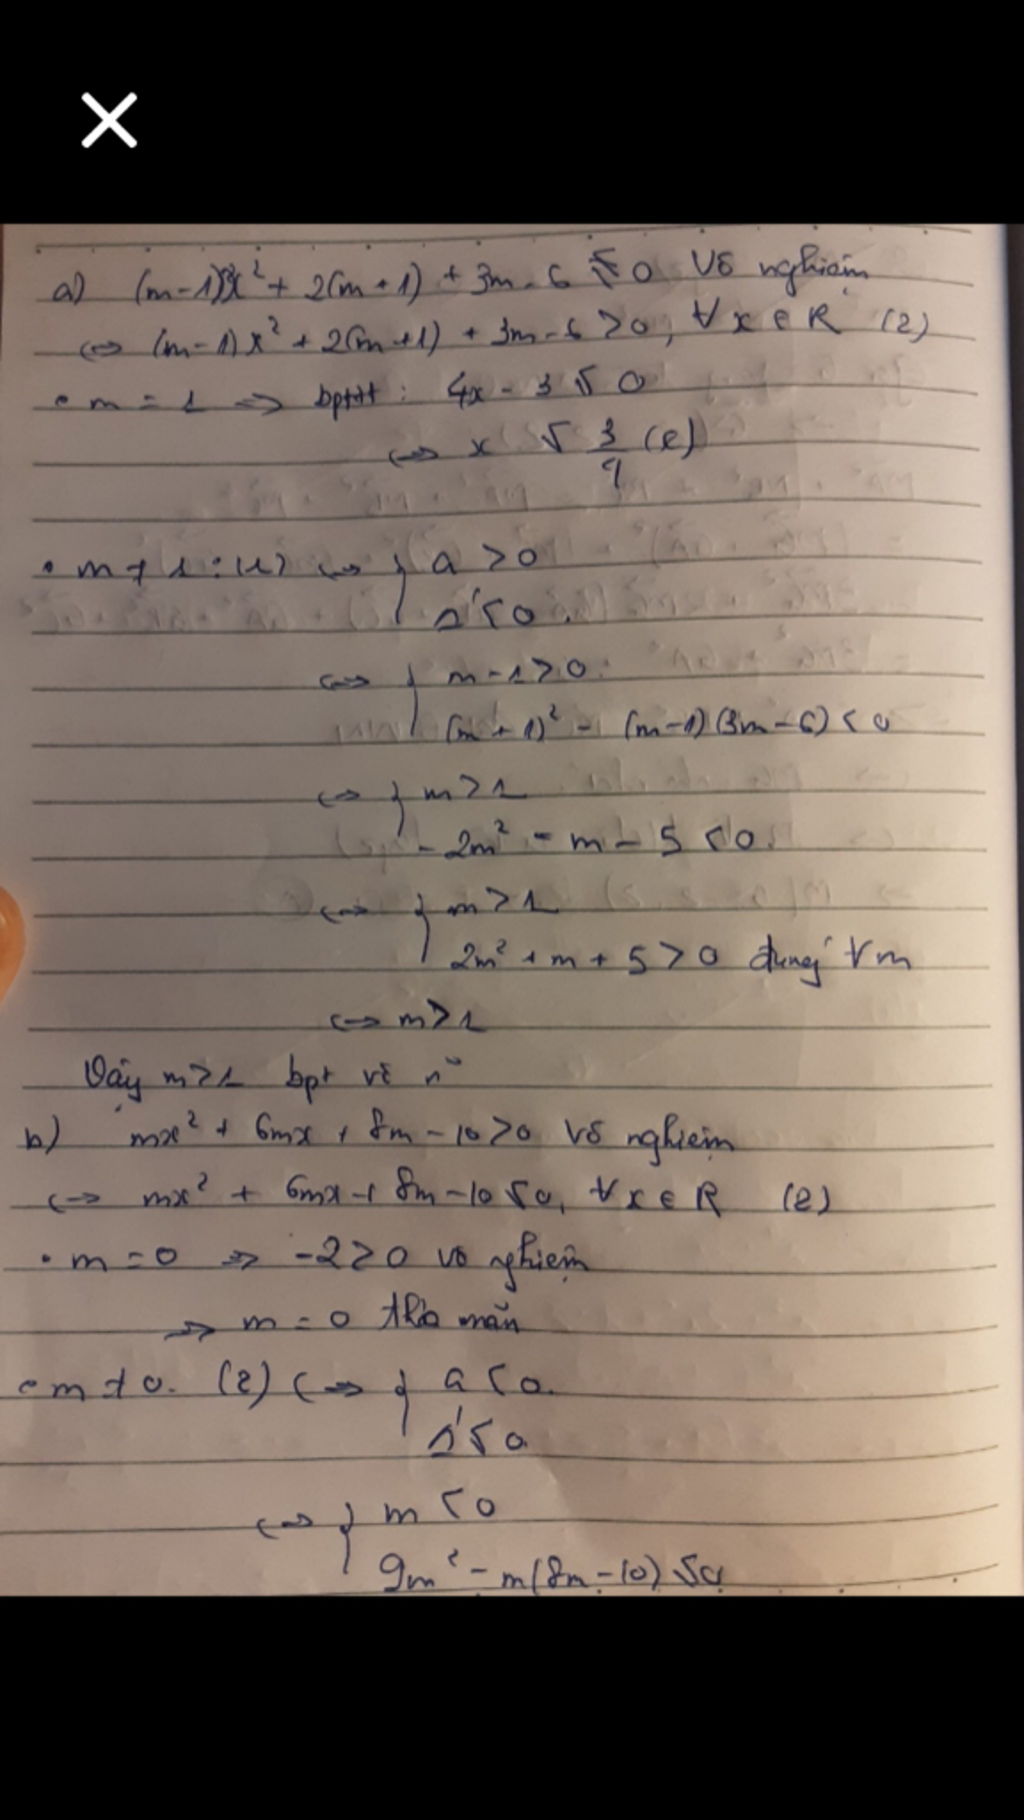 a) (m-1)x² + 2(m+1) + 3m-6 ≤ 0 Vô nghiệm
<=> (m-1)x² + 2(m+1) + 3m-6 > 0, ∀x∈R (2)
• m = 1 => bpttt : 4x - 3 ≤ 0
<=> x ≤ 3/4 (l)
• m ≠ 1 : (1) <=> { a > 0
Δ' < 0.
<=> { m - 1 > 0.
(m+1)² - (m-1)(3m-6) < 0
<=> { m > 1
-2m² - m - 5 < 0.
<=> { m > 1
2m² + m + 5 > 0 đúng ∀m
<=> m > 1
Vậy m > 1 bpt vô n⁰
b) mx² + 6mx + 8m - 10 > 0 Vô nghiệm
<=> mx² + 6mx + 8m - 10 ≤ 0, ∀x∈R (2)
• m = 0 => -2 > 0 vô nghiệm
=> m = 0 thỏa mãn
• m ≠ 0. (2) <=> { a < 0.
Δ' ≤ 0
<=> { m < 0
9m² - m(8m-10) ≤ 0